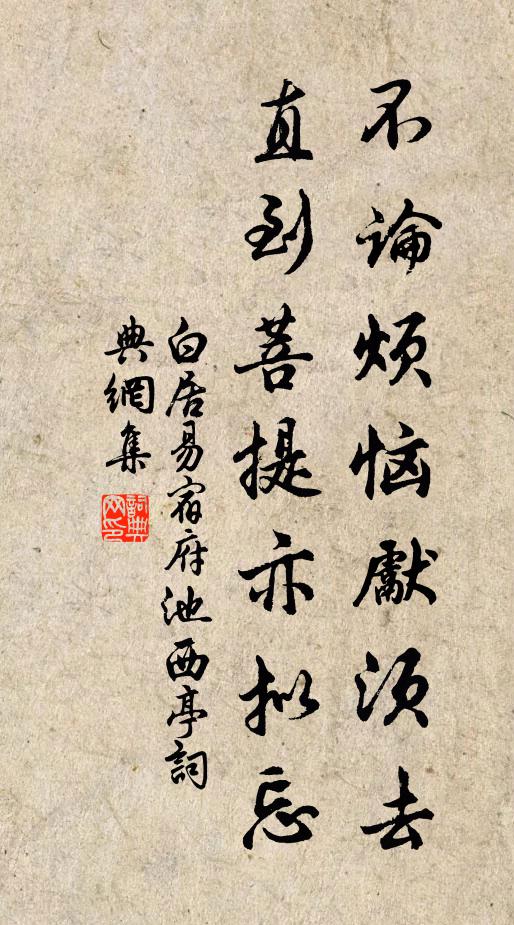 不論煩惱獻須去
直到菩提亦擬忘
白居易宿府池西亭詞
典網集
詞典
网印